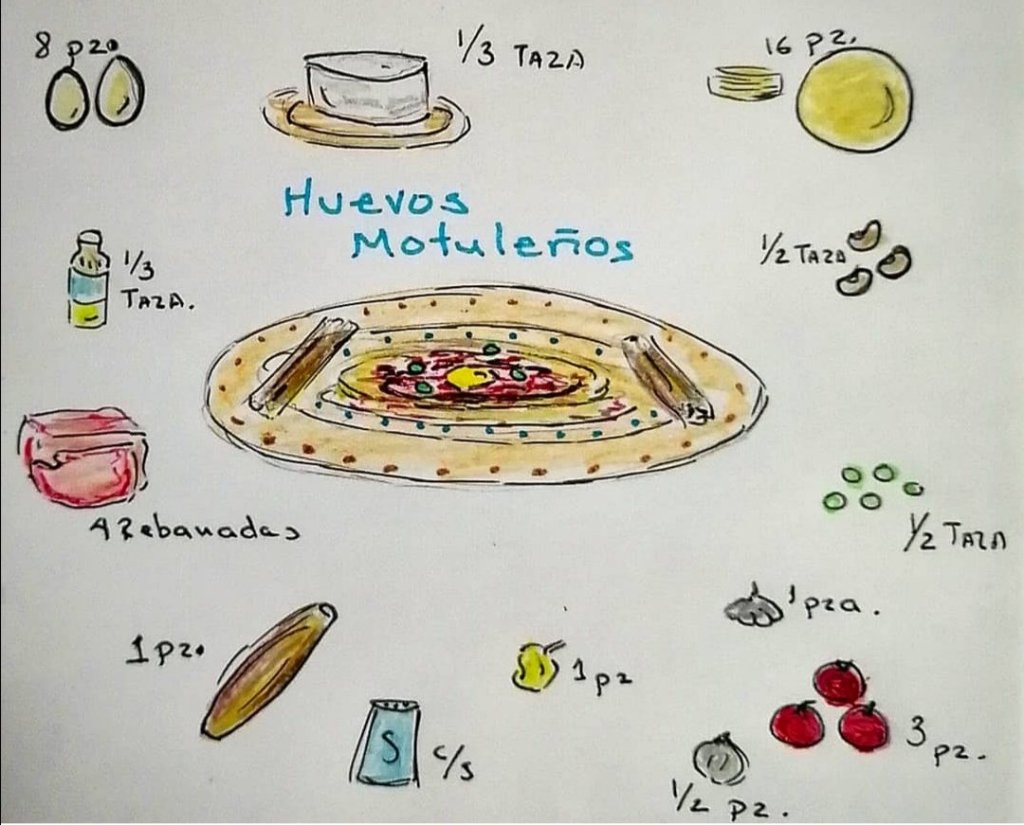 8 pz.
1/3 TAZA
16 PZ.
Huevos
Motuleños
1/2 TAZA
1/3
TAZA.
4 Rebanadas
1/2 TAZA
1 pza.
1 pz.
1 pz
3 pz.
S
c/s
1/2 pz.